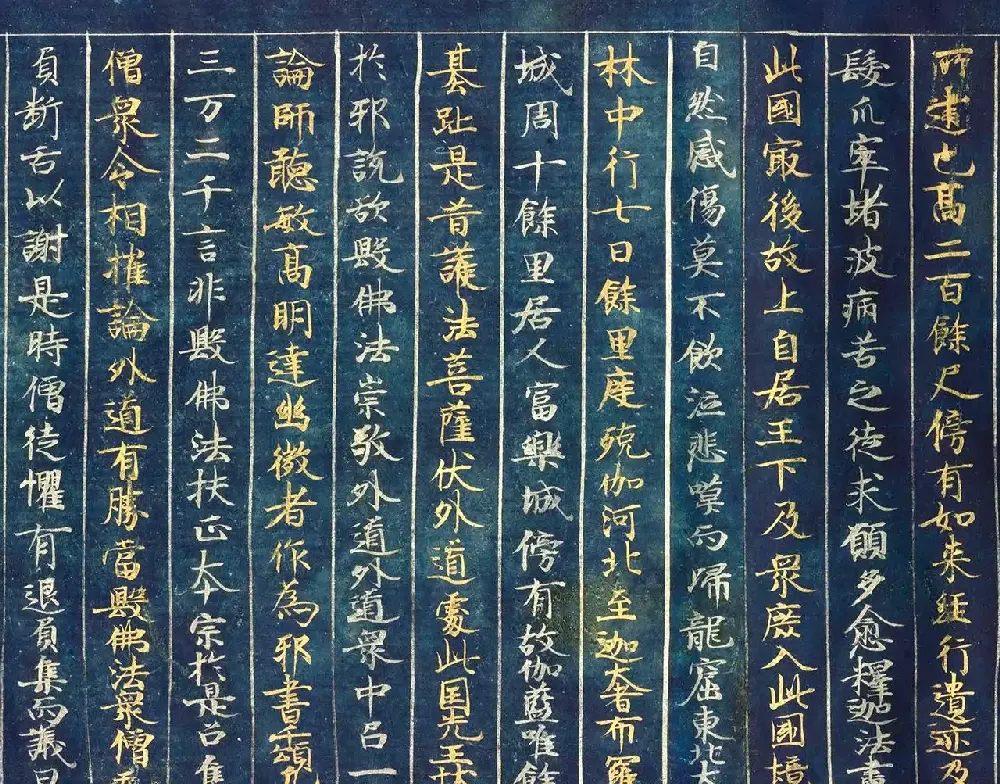 所建也髙二百餘尺傍有如来經行遺迹及
髮爪窣堵波病苦之徒求願多愈釋迦法盡
此國㝡後故上自居王下及衆庶入此國境
自然感傷莫不飲泣悲嘆而歸龍窟東北大
林中行七日餘里度殑伽河北至迦奢布羅
城周十餘里居人富樂城傍有故伽藍唯餘
基趾是昔護法菩薩伏外道處此国先王扶
於邪説欲毀佛法崇敬外道外道衆中召一
論師聡敏髙明達幽微者作為邪書千頌凢
三万二千言非毀佛法扶正本宗於是召集
僧衆令相摧論外道有勝當毀佛法衆僧
負断舌以謝是時僧徒懼有退負集而議曰